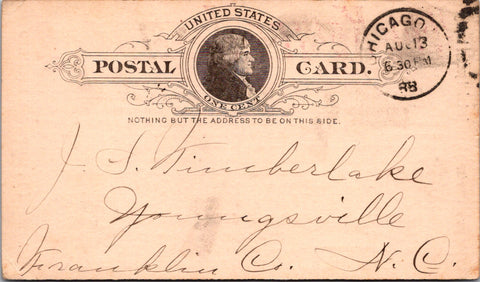 UNITED STATES
POSTAL CARD.
ONE CENT
CHICAGO
AUG 13
6 30 PM
88
NOTHING BUT THE ADDRESS TO BE ON THIS SIDE.
J. S. Timberlake
Youngsville
Franklin Co. N. C.